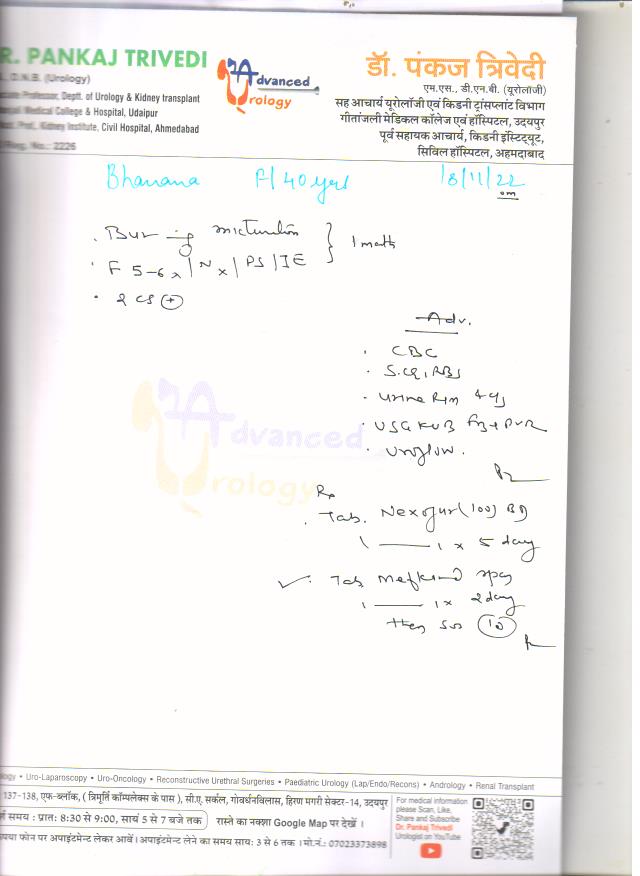 R. PANKAJ TRIVEDI
D.N.B. (Urology)
Professor, Deptt. of Urology & Kidney transplant
Medical College & Hospital, Udaipur
Prof., Kidney Institute, Civil Hospital, Ahmedabad
Reg. No.: 2226
Advanced
Urology
डॉ. पंकज त्रिवेदी
एम.एस., डी.एन.बी. (यूरोलॉजी)
सह आचार्य यूरोलॉजी एवं किडनी ट्रांसप्लांट विभाग
गीतांजली मेडिकल कॉलेज एवं हॉस्पिटल, उदयपुर
पूर्व सहायक आचार्य, किडनी इंस्टिट्यूट,
सिविल हॉस्पिटल, अहमदाबाद
Bhavana F/40 yrs 18/11/22
. Burning micturition } 1 month
. F 5-6x/Nx/PS/IE
. 2 CS +
Adv.
. CBC
. S.CR, RBS
. Urine R/m + c/s
. USG KUB + PVR
. Uroflow.
Advanced
Urology
Rx
. Tab. (100) BD
1 — 1 x 5 day
. Tab Meftal spas
1 — 1 x 2 day
then SOS 10
logy • Uro-Laparoscopy • Uro-Oncology • Reconstructive Urethral Surgeries • Paediatric Urology (Lap/Endo/Recons) • Andrology • Renal Transplant
137-138, एफ-ब्लॉक, ( त्रिमूर्ति कॉम्पलेक्स के पास ), सी.ए. सर्कल, गोवर्धनविलास, हिरण मगरी सेक्टर-14, उदयपुर
समय : प्रातः 8:30 से 9:00, सायं 5 से 7 बजे तक रास्ते का नक्शा Google Map पर देखें ।
पया फोन पर अपाइंटमेन्ट लेकर आवें। अपाइंटमेन्ट लेने का समय सायं: 3 से 6 तक । मो.नं.: 07023373898
For medical information
please Scan, Like,
Share and Subscribe
Dr. Pankaj Trivedi
Urologist on YouTube